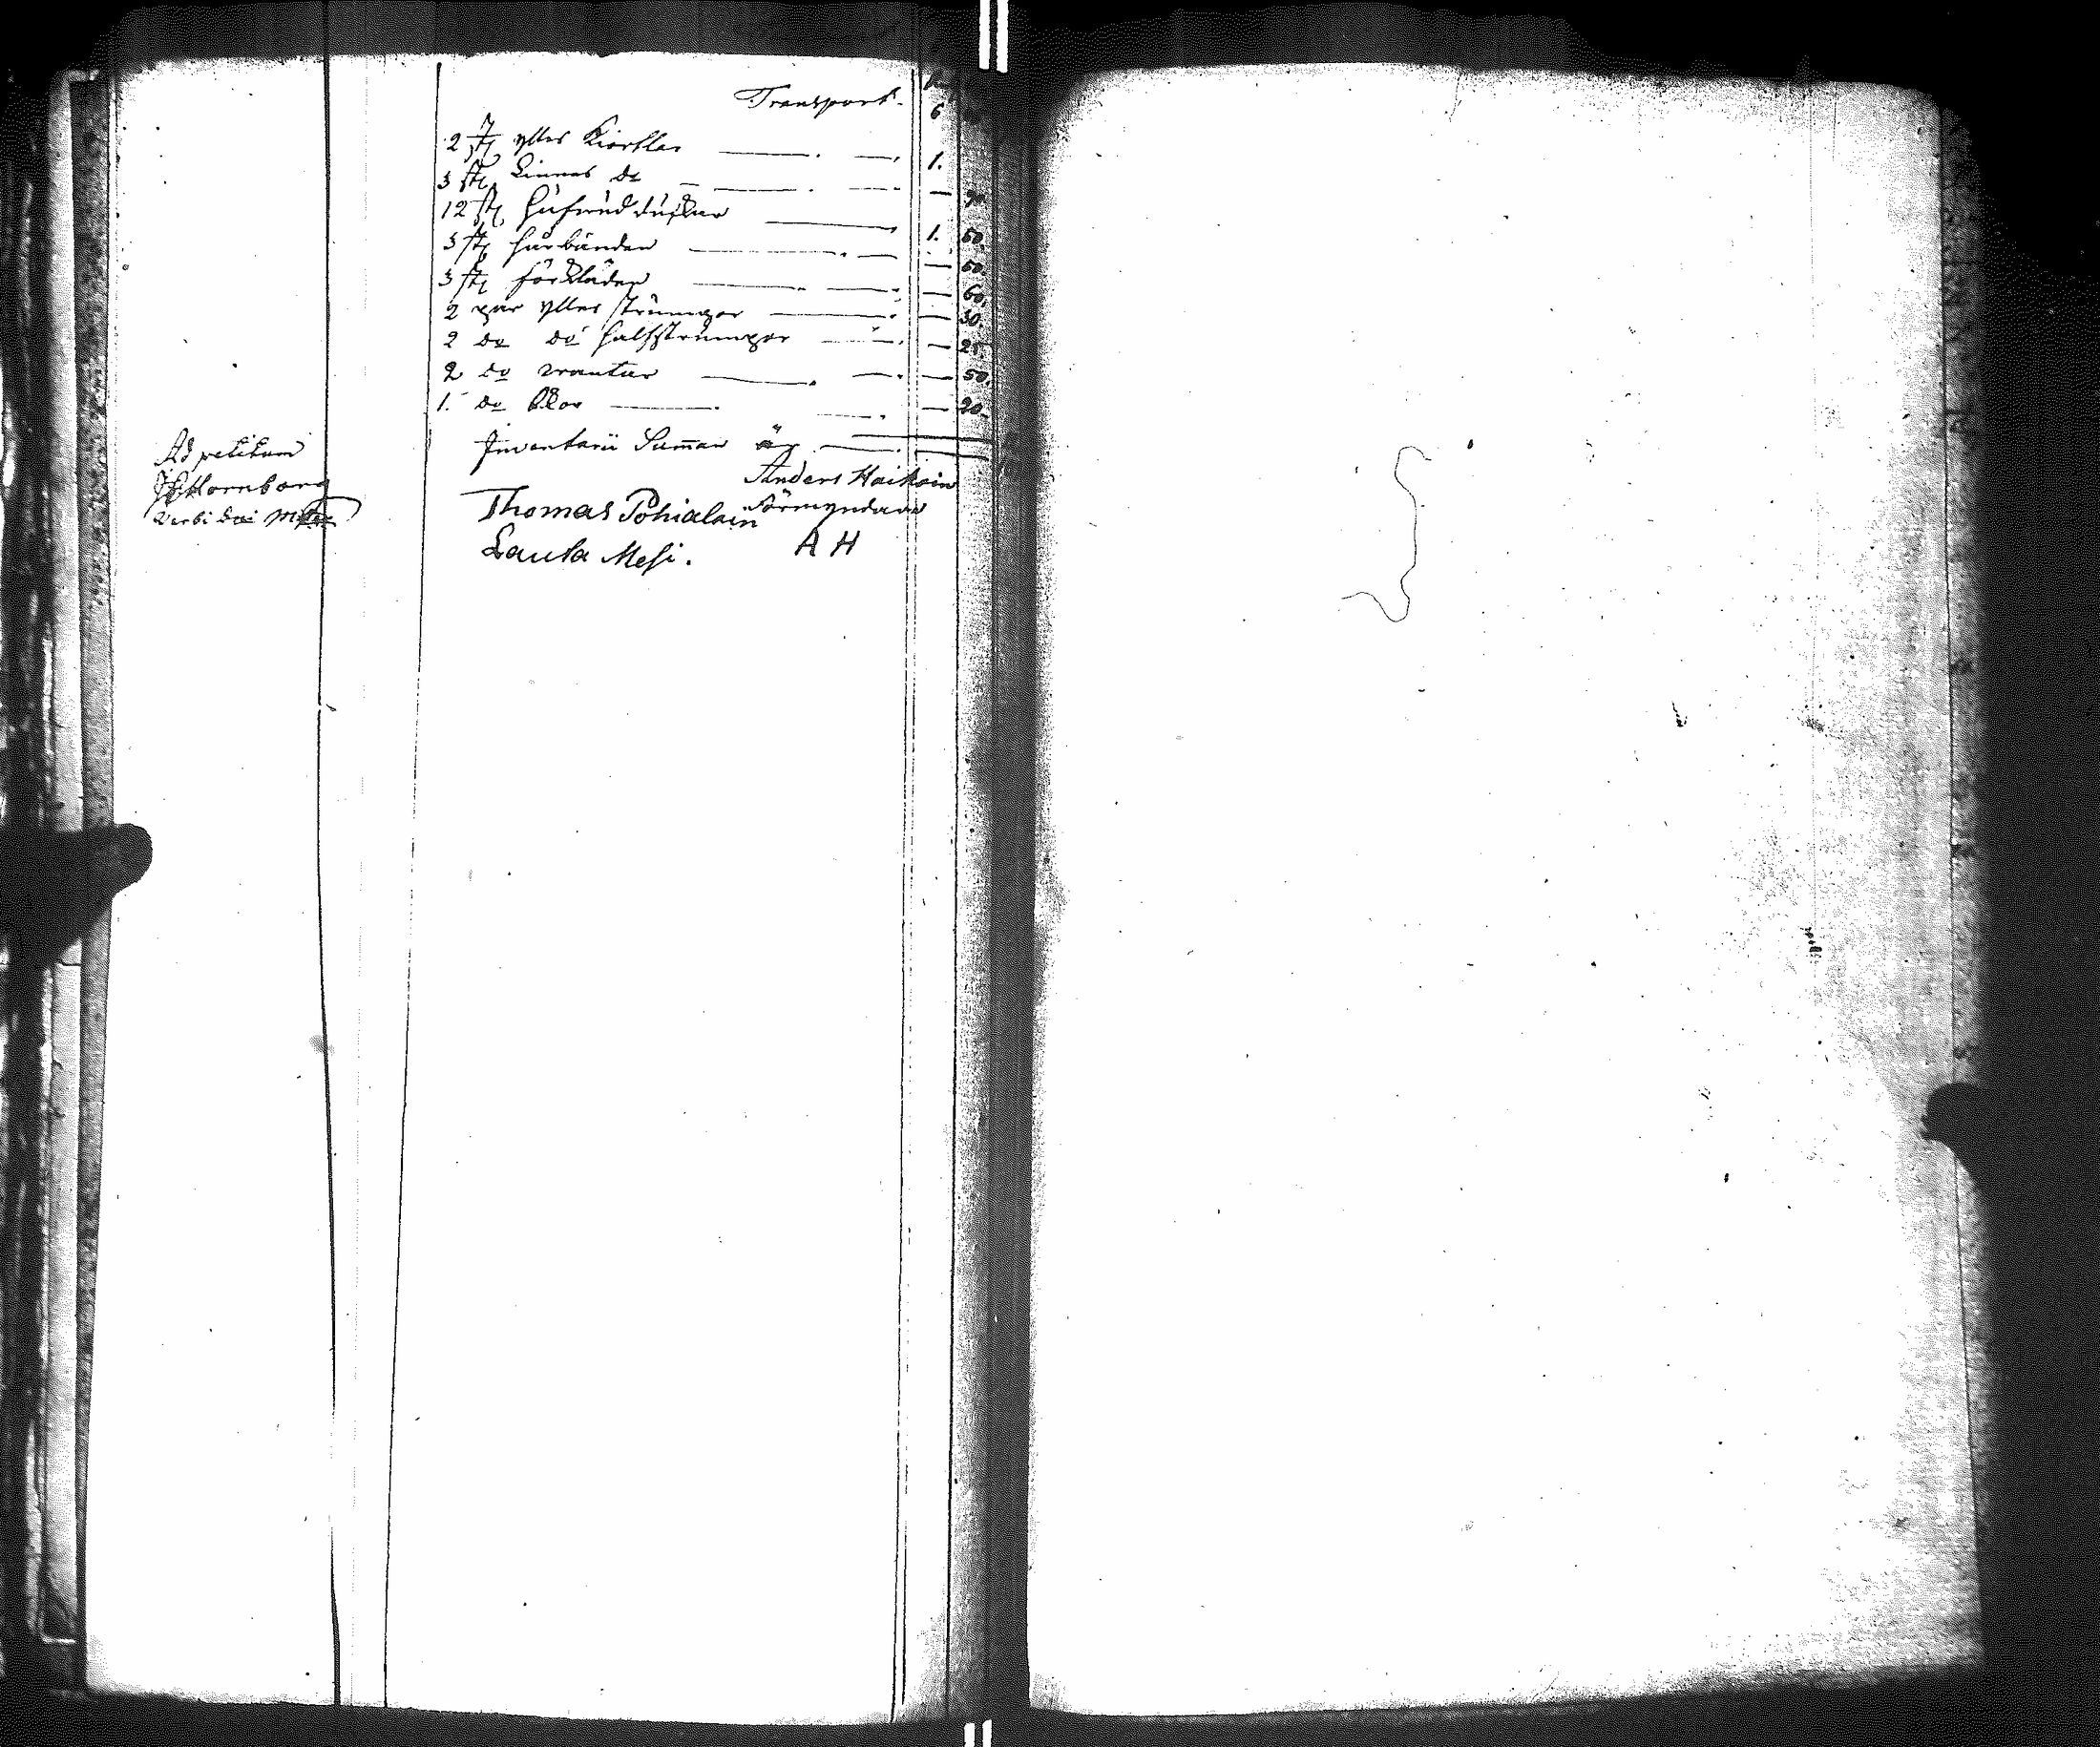 Transport. 6
2 st ylles Kiortlar 1.
3 st Linnes do — 90.
12 st hufvud dukar 1. 50.
3 st hårbänder — 50.
3 st förkläder — 60.
2 par ylles strumpor — 30.
2 do do halfstrumpor — 25.
2 do vantar — 50.
1. do skor — 20.
Inventarii Summan är
Ad petitum
Hornborg
Verbi Divi
Anders Haikain
Förmyndare
A H
Thomas Pohialain
Lauta Mesi.